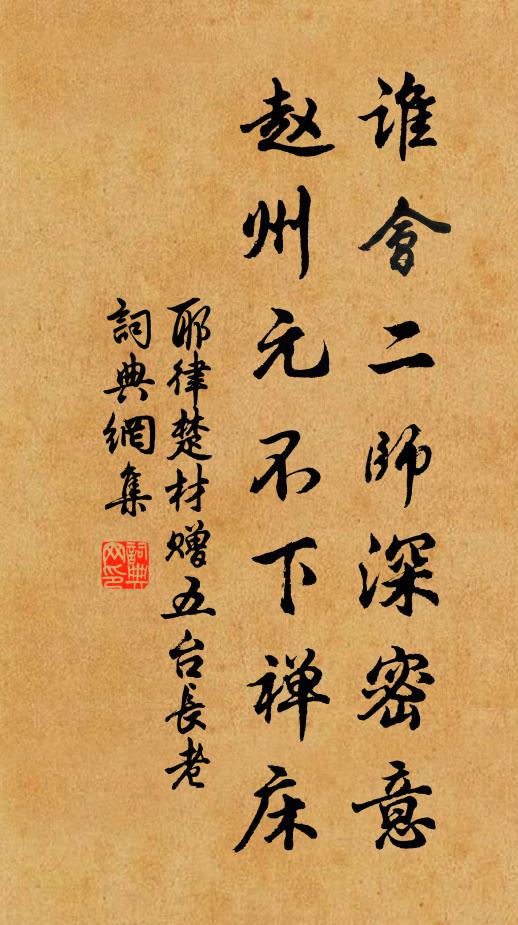 谁會二師深密意
赵州元不下禅床
耶律楚材赠五台長老
詞典網集
詞典网印